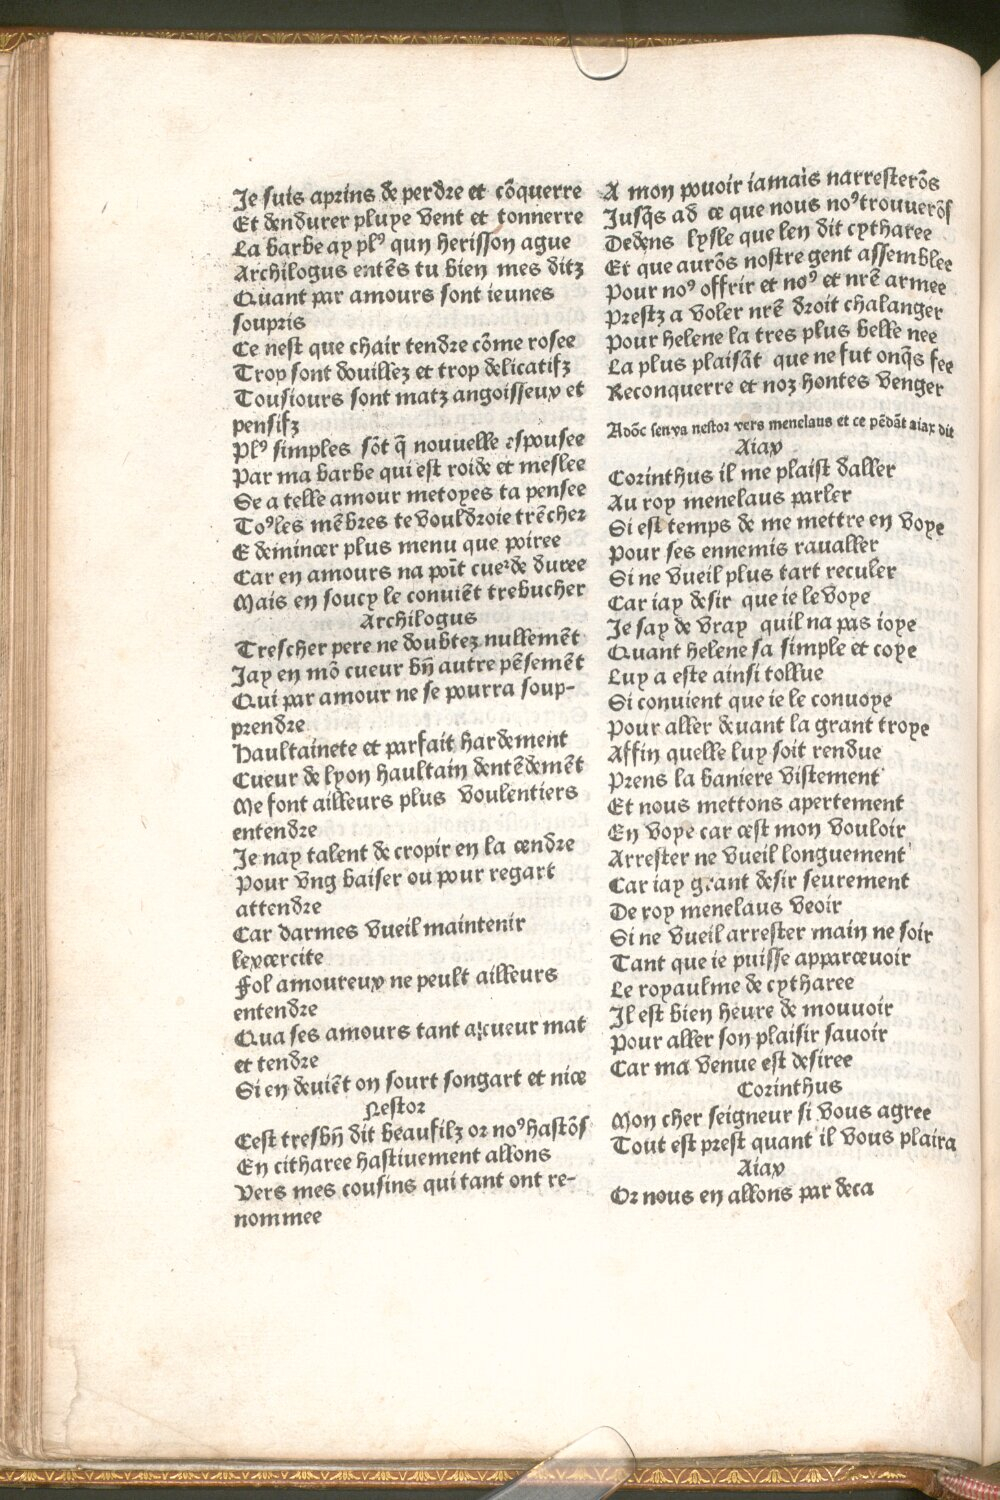 Je suis aprins de perdre et cõquerre
Et dendurer pluye vent et tonnerre
La barbe ay plꝰ qun herisson ague
Archilogus entẽs tu bien mes ditz
Quant par amours sont ieunes
soupris
Ce nest que chair tendre cõme rosee
Trop sont douillez et trop delicatifz
Tousiours sont matz angoisseux et
pensifz
Plꝰ simples sõt q̃ nouuelle espousee
Par ma barbe qui est roide et meslee
Se a telle amour metoyes ta pensee
Toꝰles mẽbres te vouldroie trẽcher
E demincer plus menu que poiree
Car en amours na poĩt cueᷣde duree
Mais en soucy le conuiẽt trebucher
Archilogus
Trescher pere ne doubtez nullemẽt
Jay en mõ cueur bñ autre pẽsemẽt
Qui par amour ne se pourra soup-
prendre
Haultainete et parfait hardement
Cueur de lyon haultain dentẽdemẽt
Me font ailleurs plus voulentiers
entendre
Je nay talent de cropir en la cendre
Pour vng baiser ou pour regart
attendre
Car darmes vueil maintenir
lexcercite
Fol amoureux ne peult ailleurs
entendre
Qua ses amours tant a cueur mat
et tendre
Si en deuiẽt on sourt songart et nice
Nestor
Cest tresbñ dit beaufilz or noꝰhastõs
En citharee hastiuement allons
Vers mes cousins qui tant ont re-
nommee
A mon pouoir iamais narresterõs
Jusq̃s ad ce que nous noꝰtrouuerõs
Dedens lysle que len dit cytharee
Et que aurõs nostre gent assemblee
Pour noꝰ offrir et noꝰ et nrẽ armee
Prestz a voler nrẽ droit chalanger
Pour helene la tres plus belle nee
La plus plaisãt que ne fut onq̃s fee
Reconquerre et noz hontes venger
Adõc senva nestor vers menelaus et ce pẽdãt aiax dit
Aiax
Corinthus il me plaist daller
Au roy menelaus parler
Si est temps de me mettre en voye
Pour ses ennemis raualler
Si ne vueil plus tart reculer
Car iay desir que ie le voye
Je say de vray quil na pas ioye
Quant helene sa simple et coye
Luy a este ainsi tollue
Si conuient que ie le conuoye
Pour aller deuant la grant troye
Affin quelle luy soit rendue
Prens la baniere vistement
Et nous mettons apertement
En voye car cest mon vouloir
Arrester ne vueil longuement
Car iay grant desir seurement
De roy menelaus veoir
Si ne vueil arrester main ne soir
Tant que ie puisse apparceuoir
Le royaulme de cytharee
Il est bien heure de mouuoir
Pour aller son plaisir sauoir
Car ma venue est desiree
Corinthus
Mon cher seigneur si vous agree
Tout est prest quant il vous plaira
Aiax
Or nous en allons par deca